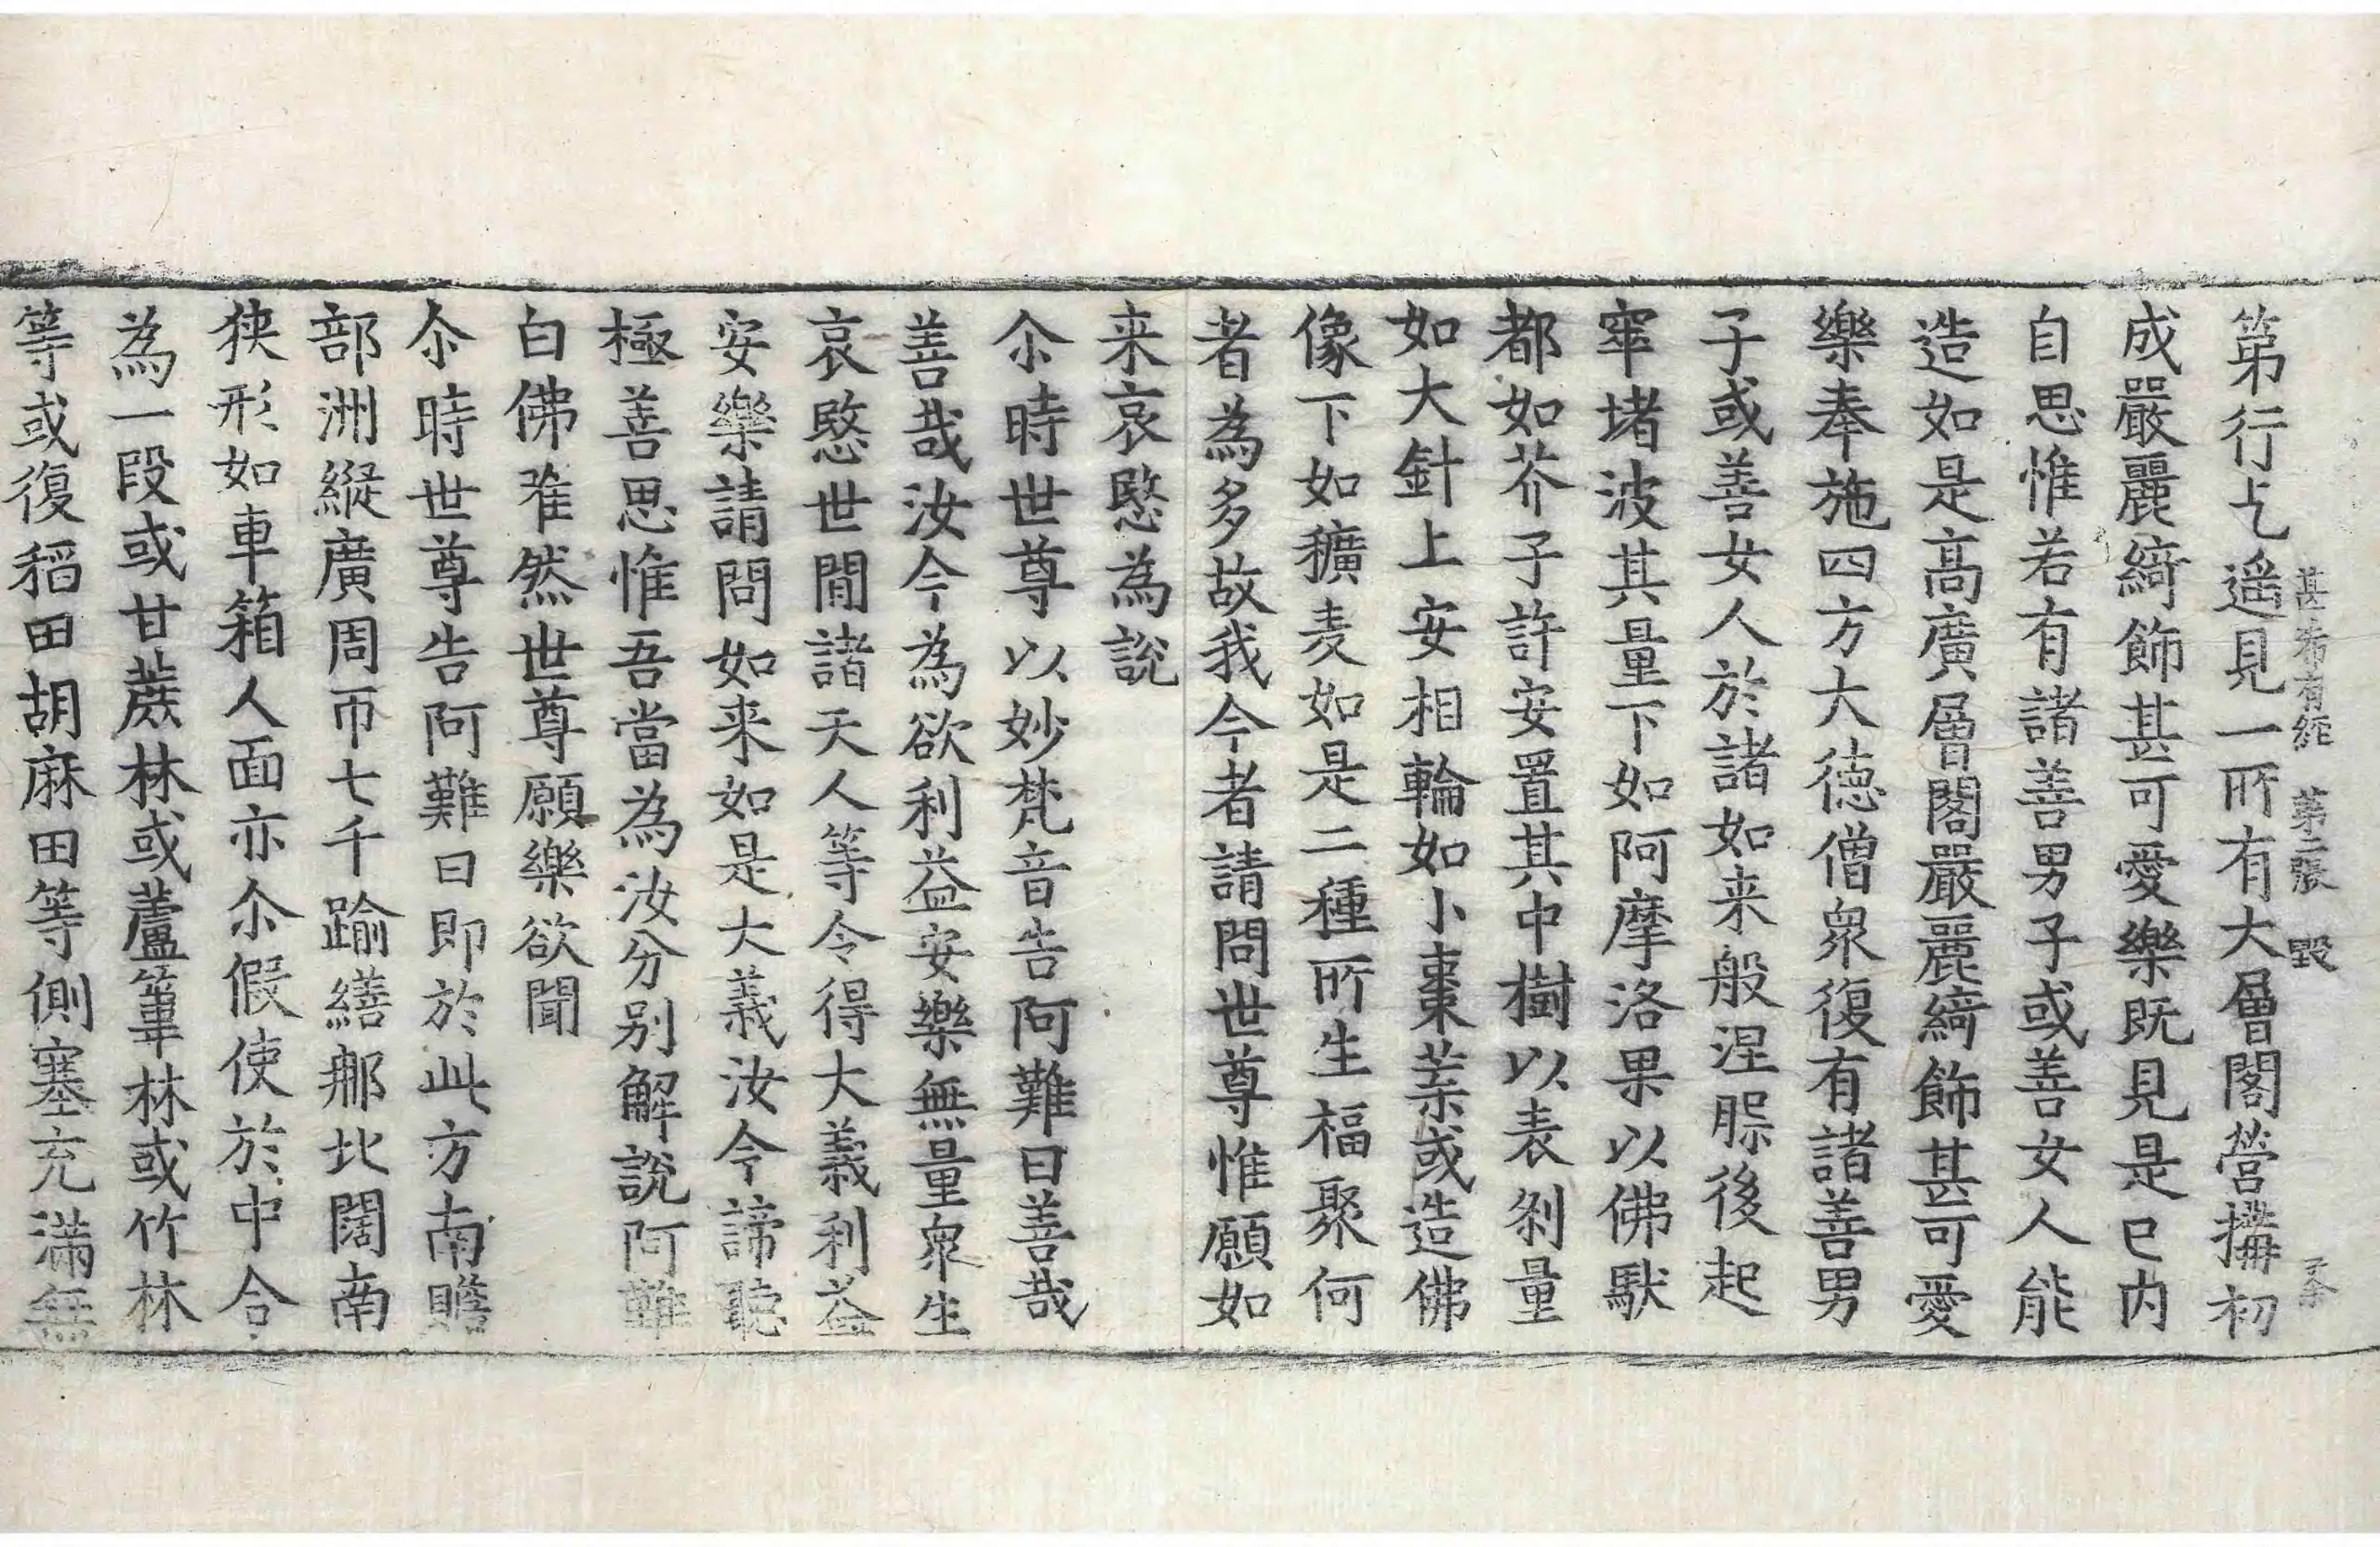 甚希有経　第二張　毀
第行乞遥見一所有大層閣營搆初
成嚴麗綺飾甚可愛樂既見是已内
自思惟若有諸善男子或善女人能
造如是高廣層閣嚴麗綺飾甚可愛
樂奉施四方大德僧衆復有諸善男
子或善女人於諸如来般涅䏶後起
窣堵波其量下如阿摩洛果以佛䭾
都如芥子許安置其中樹以表刹量
如大針上安相輪如小棗葉或造佛
像下如穬麦如是二種所生福聚何
者為多故我今者請問世尊惟願如
来哀愍為說
尒時世尊以妙梵音告阿難曰善哉
善哉汝今為欲利益安樂無量衆生
哀愍世間諸天人等令得大義利益
安樂請問如来如是大義汝今諦聽
極善思惟吾當為汝分别解說阿難
白佛唯然世尊願樂欲聞
尒時世尊告阿難曰即於此方南贍
部洲縱廣周帀七千踰繕那北闊南
狹形如車箱人面亦尒假使於中合
為一段或甘蔗林或蘆葦林或竹林
等或復稻田胡麻田等側塞充滿無